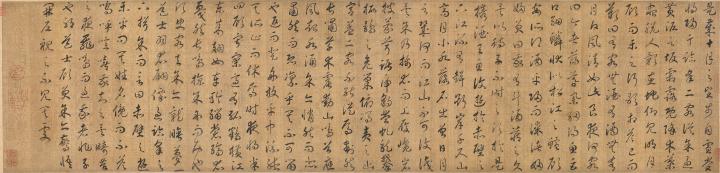 是歲十月之望步自雪堂
將歸于臨皋二客從余過
黃泥之坂霜露既降木葉
盡脫人影在地仰見明月
顧而樂之行歌相答已而
歎曰有客無酒有酒無肴
月白風清如此良夜何客
曰今者薄暮舉網得魚巨
口細鱗狀如松江之鱸顧
安所得酒乎歸而謀諸婦
婦曰我有斗酒藏之久
矣以待子不時之須於是
攜酒與魚復遊於赤壁之
下江流有聲斷岸千尺山
高月小水落石出曾日月
之幾何而江山不可復識
矣予乃攝衣而上履巉巖
披蒙茸踞虎豹登虬龍攀
栖鶻之危巢俯馮夷之幽
宮蓋二客不能從焉劃然
長嘯草木震動山鳴谷應
風起水涌予亦悄然而悲
肅然而恐凜乎其不可留
也反而登舟放乎中流聽
其所止而休焉時夜將半
四顧寂寥適有孤鶴橫江
東來翅如車輪玄裳縞衣
戛然長鳴掠予舟而西也
須臾客去予亦就睡夢一
道士羽衣蹁躚過臨皋之
下揖予而言曰赤壁之遊
樂乎問其姓名俛而不答
嗚呼噫嘻我知之矣疇昔
之夜飛鳴而過我者非子
也邪道士顧笑予亦驚悟
開戶視之不見其處